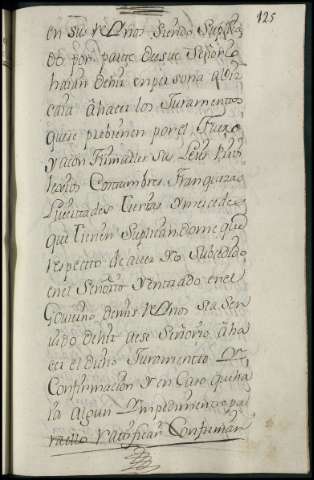 125
en sus Reÿnos siendo Suplica
do por parte de ese Señorio
harán de hir en persona a Viz
caia â hacer los Juramentos
que se prebienen por el Fuero
y a confirmarles sus Leies Privi
lexios Costumbres Franquezas
Livertades Tierras y mercedes
que tienen Suplicandome que
respecto de aver Yo Subcedido
en el Señorio y entrado en el
Govierno de mis Reÿnos sea ser
vido de hir a ese Señorio â ha
cer el dicho Juramento y
Confirmacion y en Caso que ha
ia algun Ympedimento pa
ra ello ratificar Confirmar